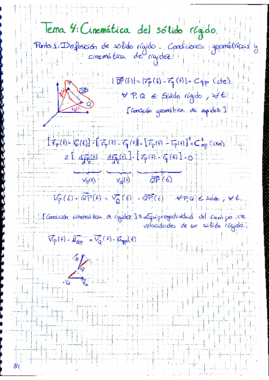 Tema 4: Cinemática del sólido rígido.
Punto 1: Definición de sólido rígido. Condiciones geométricas y
cinemática de rigidez:
|QP(t)| = |r_P(t) - r_Q(t)| = C_QP (cte)
∀ P, Q ∈ Sólido rígido, ∀ t.
[Condición geométrica de rigidez]
[r_P(t) - r_Q(t)] · [r_P(t) - r_Q(t)] = [r_P(t) - r_Q(t)]² = C²_PQ (cte)
2 [ dr_P(t)/dt - dr_Q(t)/dt ] · [r_P(t) - r_Q(t)] = 0
v_P(t) v_Q(t) QP(t)
v_P(t) · QP(t) = v_Q(t) · QP(t) ∀ P, Q ∈ Sólido, ∀ t.
[Condición cinemática de rigidez] ≡ Equiproyectividad del campo de
velocidades de un sólido rígido.
81